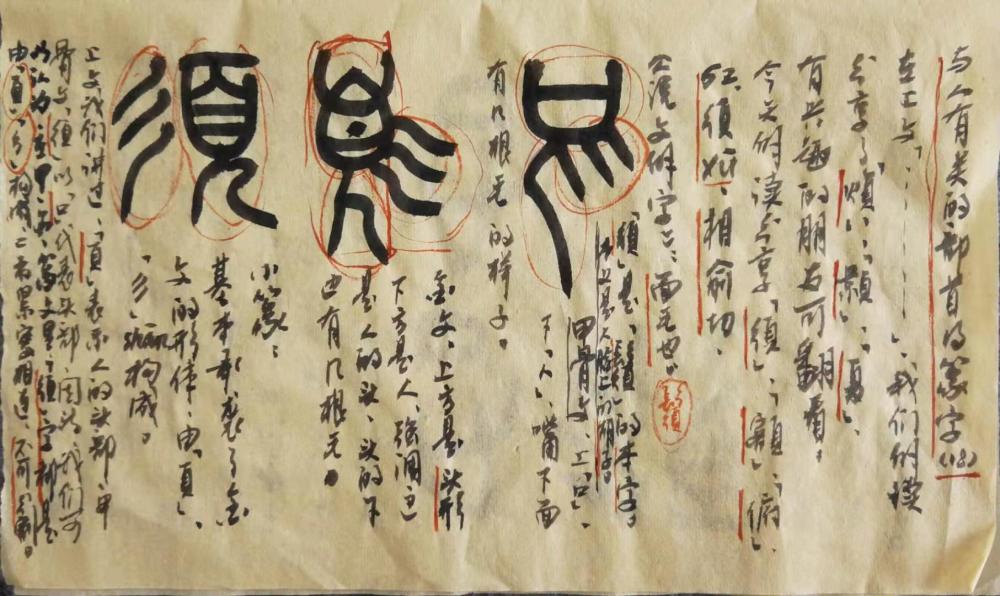 与人有关的部首的篆字(18)
在上文「」,我们解读
与享了「烦」、「颢」、「夏」,
有兴趣的朋友可翻看。
今天解读与享「须」、「」、「俯」,
红、须 相俞切。
说文解字云:面毛也。
鬚
「须」是「鬚」的本字。
甲骨文、上「口」、
下「人」,嘴下面
有几根毛的样子。
金文、上方是头形
下方是人、强调这
是人的头、头的下
边有几根毛。
須
小篆、
基本承袭了金
文的形体、由「頁」、
「彡」构成。
上文我们讲过、「頁」表示人的头部、甲
骨文「须」以「口」代表头部、因此、我们可
以认为、至甲、金、篆文里「须」字都是
由「頁」「彡」构成、